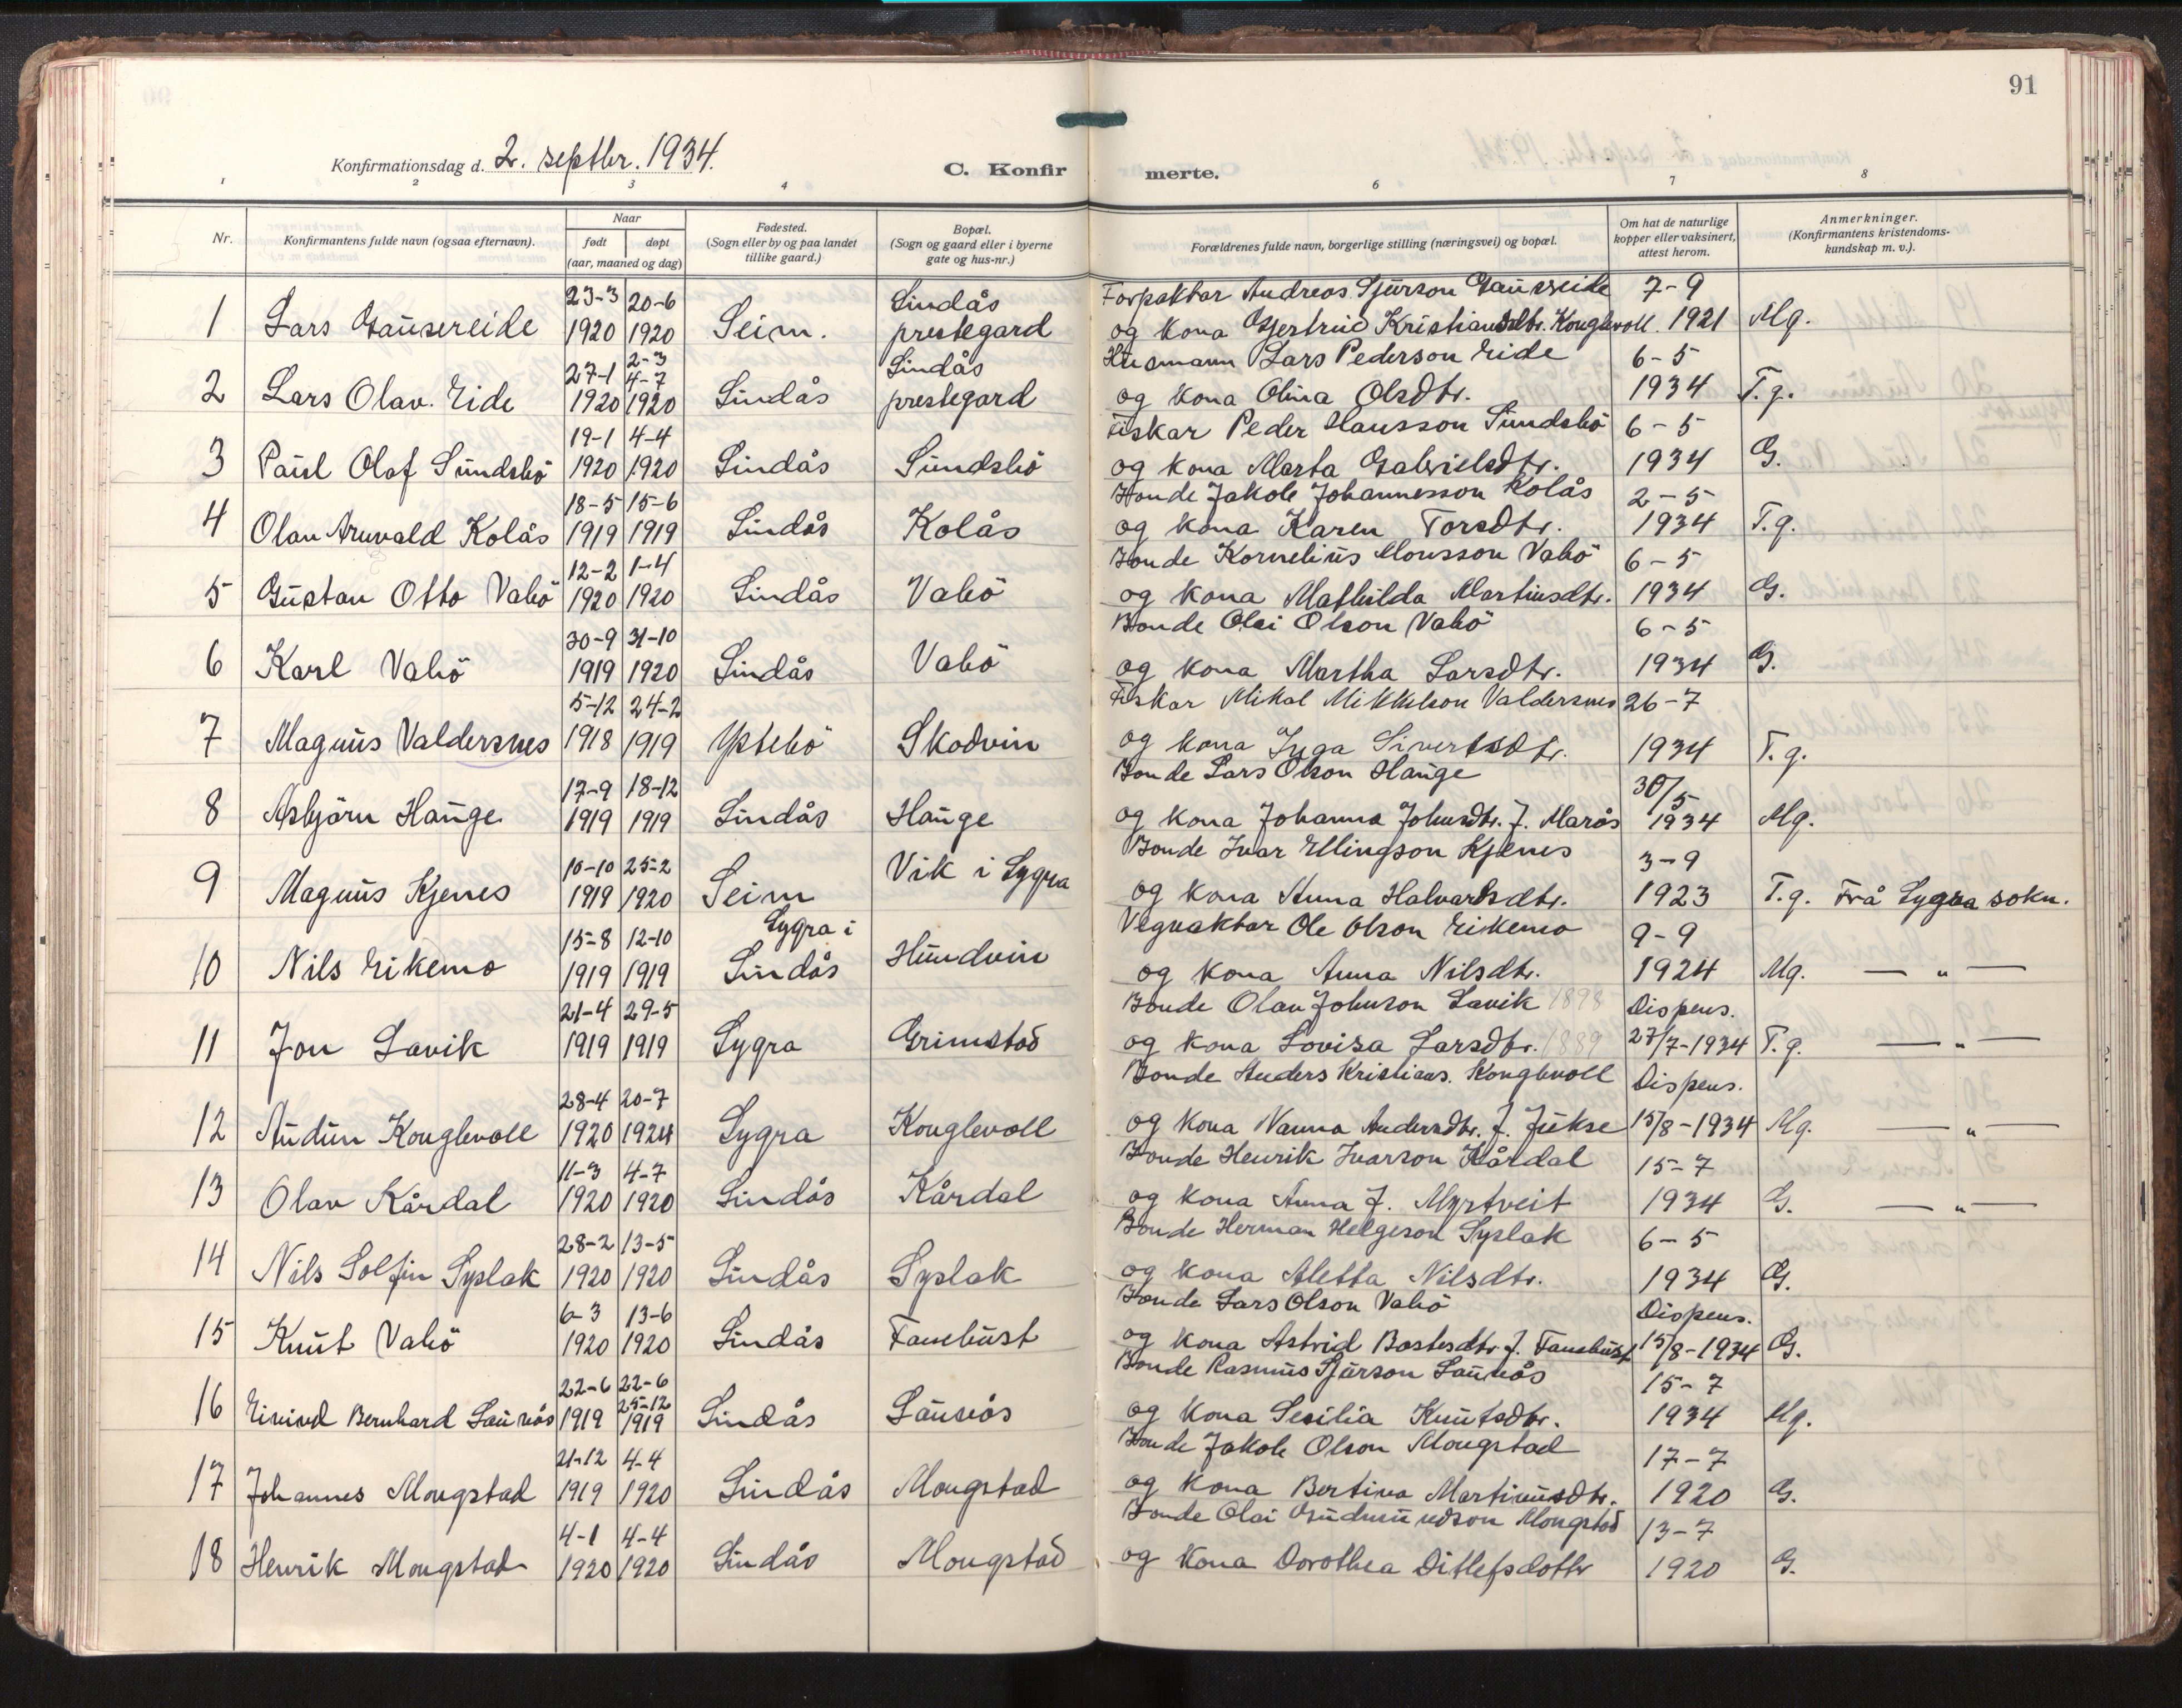 91
Konfirmationsdag d. 2. septbr. 1934.
C. Konfir merte.
1 2 3 4 5 6 7 8
Nr.
Konfirmantens fulde navn (ogsaa efternavn).
Naar
født døpt
(aar, maaned og dag)
Fødested.
(Sogn eller by og paa landet
tillike gaard.)
Bopæl.
(Sogn og gaard eller i byerne
gate og hus-nr.)
Forældrenes fulde navn, borgerlige stilling (næringsvei) og bopæl.
Om hat de naturlige
kopper eller vaksinert,
attest herom.
Anmerkninger.
(Konfirmantens kristendoms-
kundskap m. v.).
23-3 20-6 Lindås Forpaktar Andreas Sjurson Gausereide 7-9
1 Lars Gausereide 1920 1920 Seim. prestegard og kona Gjertrud Kristiansdtr. Konglevoll. 1921 Mg.
27-1 2-3 4-7 Lindås Husmann Lars Pederson Eide 6-5
2 Lars Olav. Eide 1920 1920 Lindås prestegard og kona Olina Olsdtr. 1934 T.g.
19-1 4-4 Fiskar Peder Hansson Sundsbö 6-5
3 Paul Olaf Sundsbö 1920 1920 Lindås Sundsbö og kona Marta Gabrielsdtr. 1934 G.
18-5 15-6 Bonde Jakob Johannesson Kolås 2-5
4 Olav Arnvald Kolås 1919 1919 Lindås Kolås og kona Karen Torsdtr. 1934 T.g.
12-2 1-4 Bonde Kornelius Monsson Vabö 6-5
5 Gustav Otto Vabö 1920 1920 Lindås Vabö og kona Mathilda Martinsdtr. 1934 G.
30-9 31-10 Bonde Olai Olson Vabö 6-5
6 Karl Vabö 1919 1920 Lindås Vabö og kona Martha Larsdtr. 1934 G.
5-12 24-2 Fiskar Mikal Mikkelson Valdersnes 26-7
7 Magnus Valdersnes 1918 1919 Ystebö Skodvin og kona Inga Sivertsdtr. 1934 T.g.
17-9 18-12 Bonde Lars Olson Hauge 30/5
8 Asbjörn Hauge 1919 1919 Lindås Hauge og kona Johanna Johnsdtr. f. Marås 1934 Mg.
10-10 25-2 Bonde Ivar Ellingson Kjenes 3-9
9 Magnus Kjenes 1919 1920 Seim Vik i Lygra og kona Anna Halvardsdtr. 1923 T.g. Frå Lygra sokn.
15-8 12-10 Lygra i Vegvaktar Ole Olson Eikemo 9-9
10 Nils Eikemo 1919 1919 Lindås Hundvin og kona Anna Nilsdtr. 1924 Mg. — " —
21-4 29-5 Bonde Olav Johnson Lavik 1898 Dispens.
11 Jon Lavik 1919 1919 Lygra Grimstad og kona Lovisa Larsdtr. 1889 27/7-1934 T.g. — " —
28-4 20-7 Bonde Anders Kristians. Konglevoll Dispens.
12 Audun Konglevoll 1920 1924 Lygra Konglevoll og kona Nanna Andersdtr. f. Jukse 15/8-1934 Mg. — " —
11-3 4-7 Bonde Henrik Ivarson Kårdal 15-7
13 Olav Kårdal 1920 1920 Lindås Kårdal og kona Anna f. Myrtveit 1934 G. — " —
28-2 13-5 Bonde Herman Helgeson Syslak 6-5
14 Nils Solfin Syslak 1920 1920 Lindås Syslak og kona Aletta Nilsdtr. 1934 G.
6-3 13-6 Bonde Lars Olson Vabö Dispens.
15 Knut Vabö 1920 1920 Lindås Fanebust og kona Astrid Bastesdtr f. Fanebust 15/8-1934 G.
22-6 22-6 25-12 Bonde Rasmus Sjurson Laurås 15-7
16 Eivind Bernhard Laurås 1919 1919 Lindås Laurås og kona Sesilia Knutsdtr. 1934 Mg.
21-12 4-4 Bonde Jakob Olson Mongstad 17-7
17 Johannes Mongstad 1919 1920 Lindås Mongstad og kona Bertina Martinusdtr. 1920 G.
4-1 4-4 Bonde Olai Gudmundson Mongstad 13-7
18 Henrik Mongstad 1920 1920 Lindås Mongstad og kona Dorothea Ditlefsdottr 1920 G.